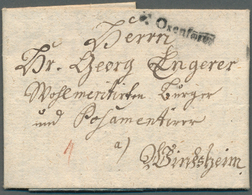 v. Oxenfurt
Herrn
Hr. Georg Engerer
Wohlmeritirten Burger
und Posamentirer
a)
Windsheim